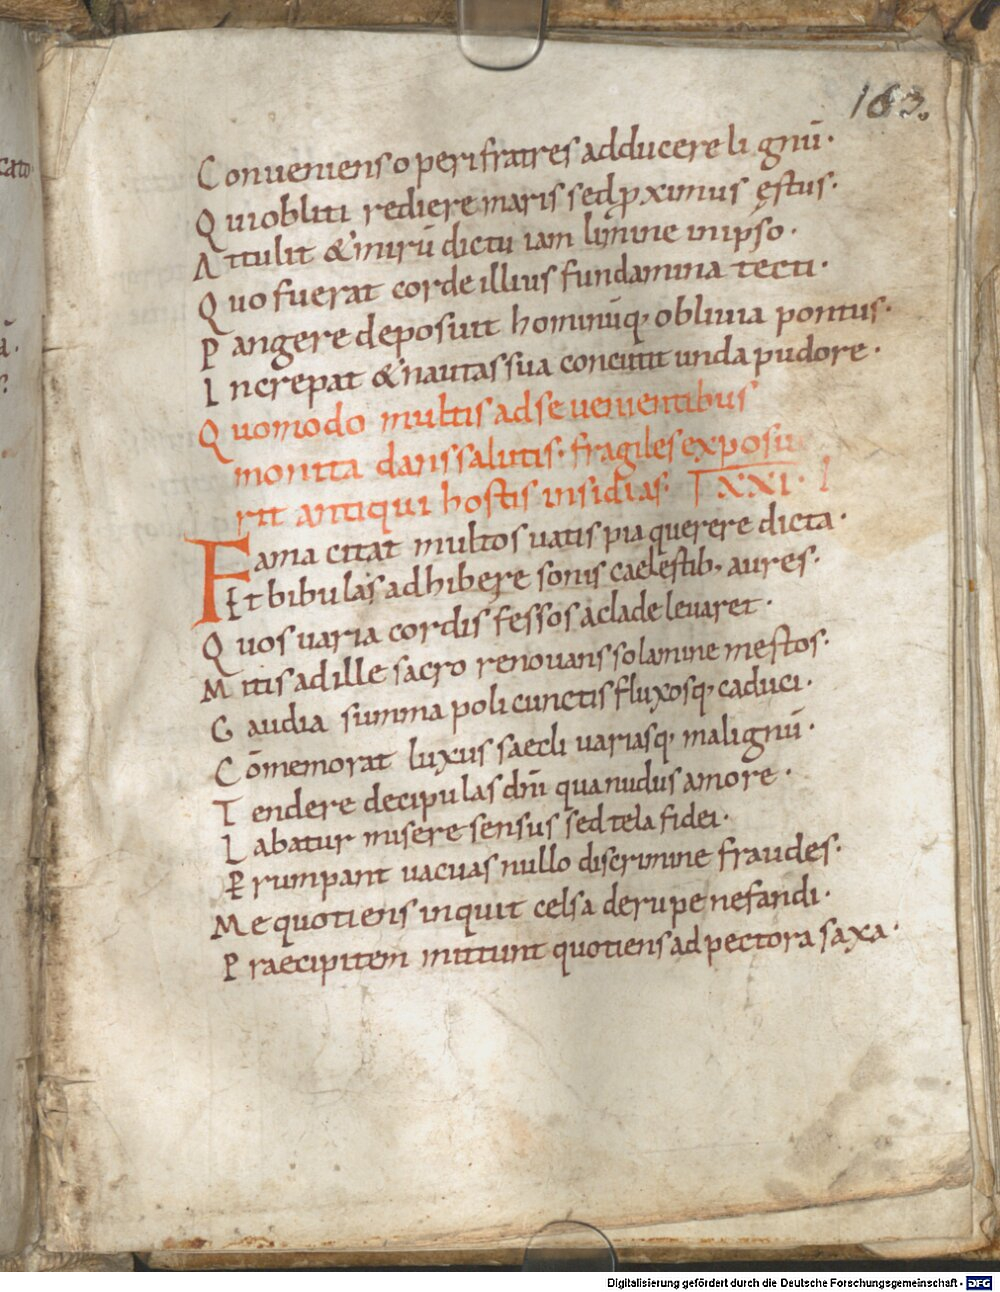 163.
Conueniens operi fratres adducere lignū·
Qui obliti rediere maris sed pximus ęstus·
Attulit & mirū dictu iam limine in ipso·
Quo fuerat corde illius fundamina tecti·
Pangere deposuit hominūq; obliuia pontus·
Increpat & nautas sua concutit unda pudore·
Quomodo multis ad se uenientibus
monita dans salutis· fragiles exposu
erit antiqui hostis insidias· XXI·
Fama citat multos uatis pia querere dicta·
Et bibulas adhibere sonis caelestib; aures·
Quos uaria cordis fessos a clade leuaret·
Mitis ad ille sacro renouans solamine mestos·
Gaudia summa poli cunctis fluxosq; caduci·
Cōmemorat luxus saecli uariasq; malignū·
Tendere decipulas dnī qua nudus amore·
Labatur misere sensus sed tela fidei·
Prumpant uacuas nullo discrimine fraudes·
Me quotiens inquit celsa de rupe nefandi·
Praecipitem mittunt quotiens ad pectora saxa·
Digitalisierung gefördert durch die Deutsche Forschungsgemeinschaft · DFG